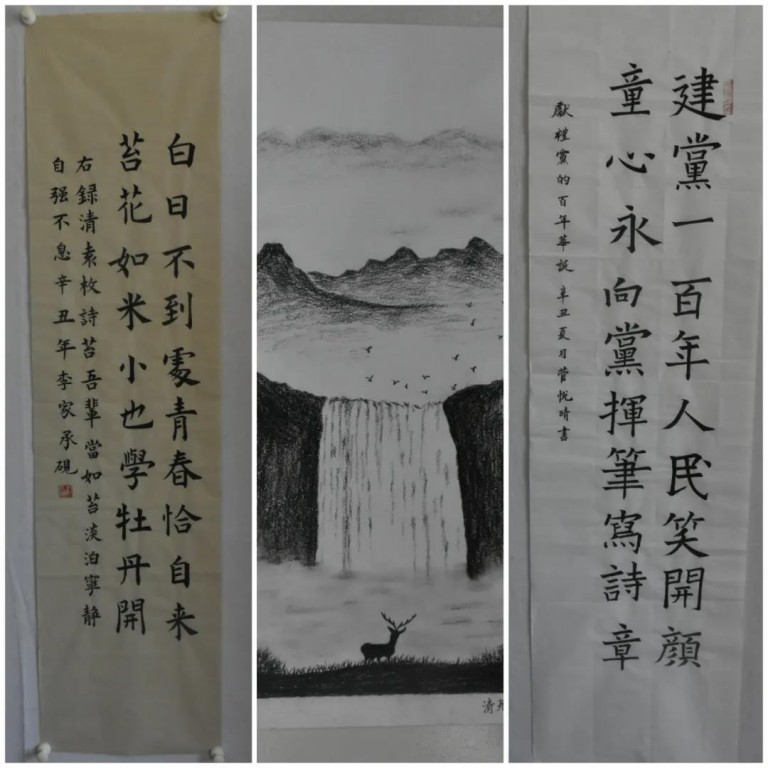 白日不到處青春恰自来
苔花如米小也學牡丹開
右錄清袁枚詩苔吾輩當如苔淡泊寧静
自强不息辛丑年李家承硯
清
建黨一百年人民笑開顔
童心永向黨揮筆寫詩章
獻禮黨的百年華誕 辛丑夏月管悦晴書